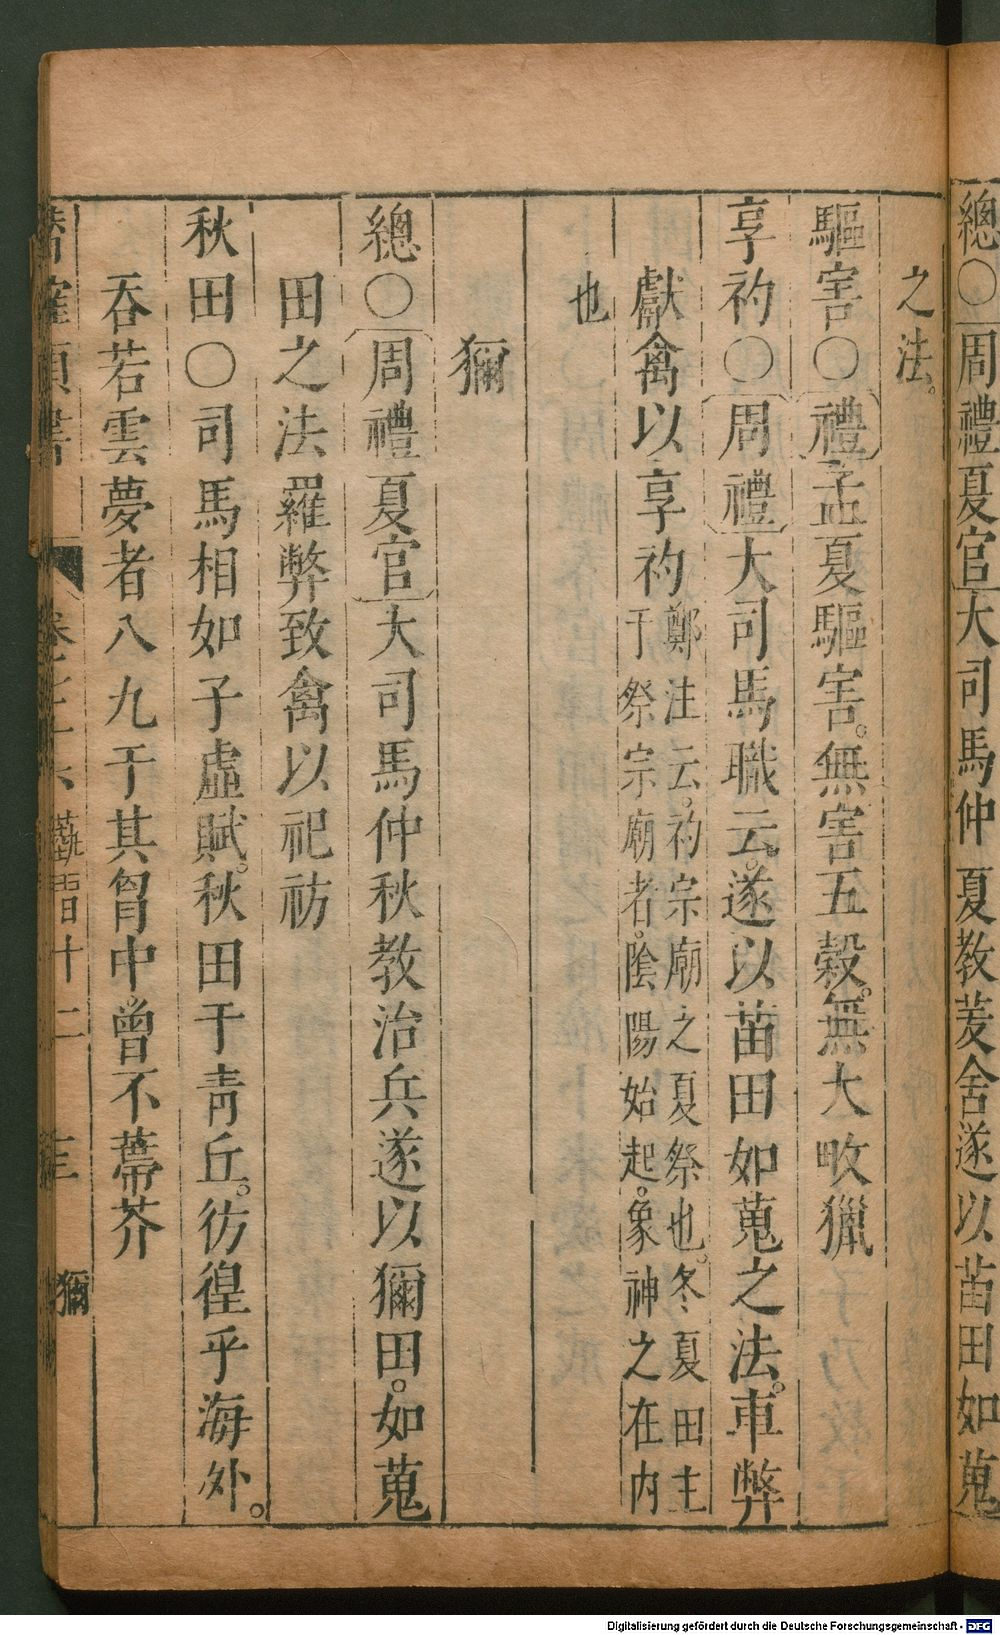 總○周禮夏官大司馬仲夏教茇舍遂以苗田如蒐
之法。
驅害○禮孟夏驅害。無害五穀。無大畋獵
享礿○周禮大司馬職云。遂以苗田如蒐之法。車弊
獻禽以享礿鄭注云。礿宗廟之夏祭也。冬夏田主
于祭宗廟者。陰陽始起。象神之在内
也
獮
總○周禮夏官大司馬仲秋教治兵遂以獮田。如蒐
田之法羅弊致禽以祀祊
秋田○司馬相如子虛賦。秋田于青丘。彷徨乎海外。
吞若雲夢者八九于其胷中。曾不蔕芥
類書
獮
Digitalisierung gefördert durch die Deutsche Forschungsgemeinschaft - DFG